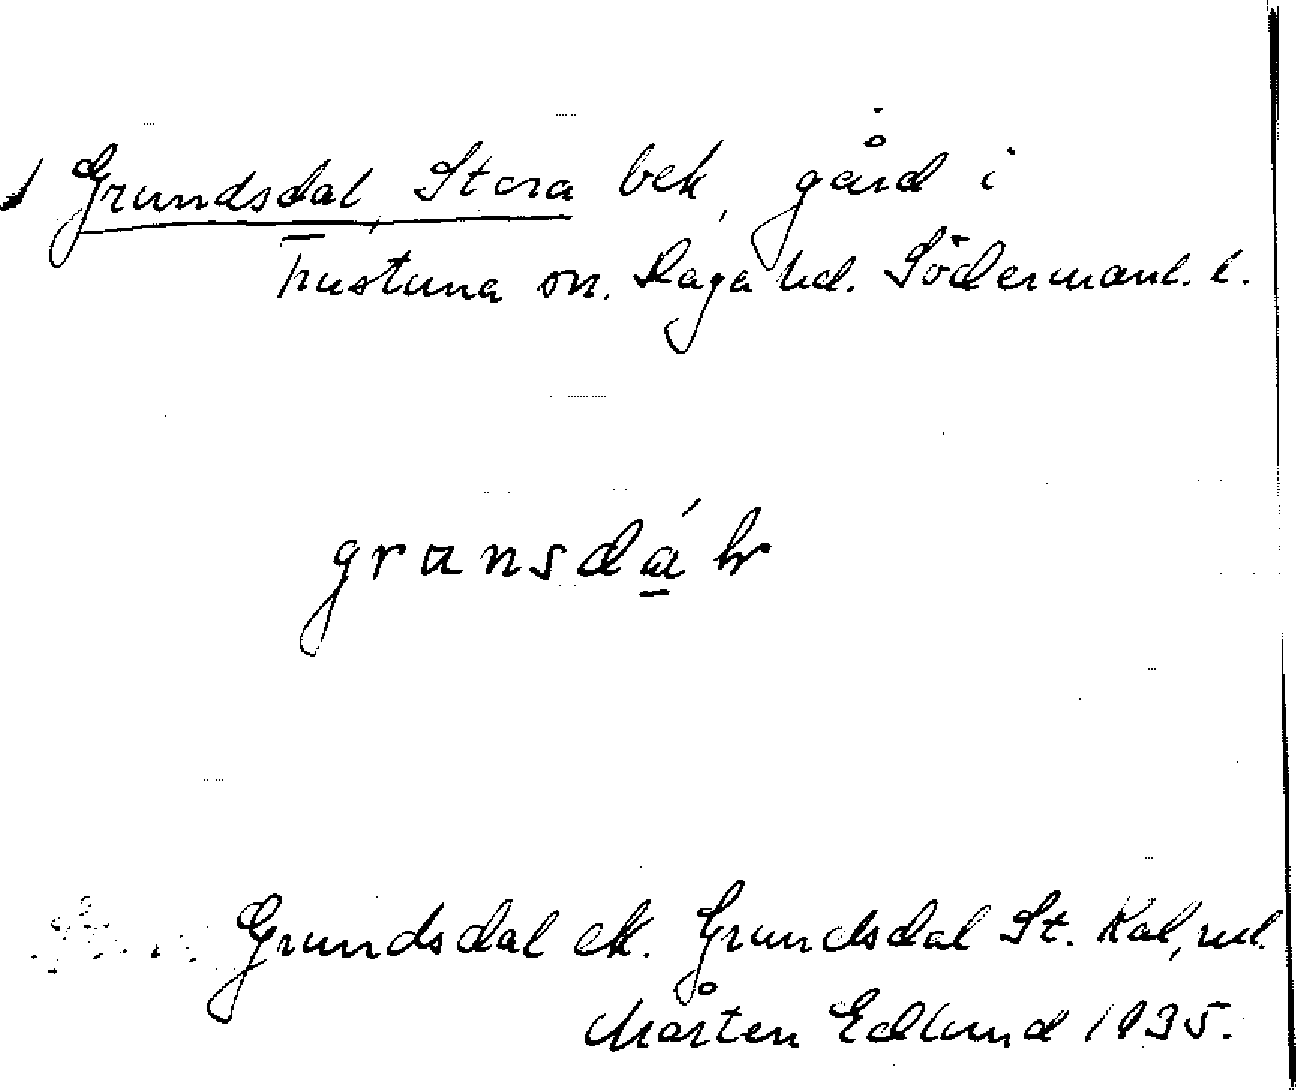 Grundsdal, Stora bek, gård i
Frustuna sn. Daga hd. Södermanl. l.
grunsdá̱lr
Grundsdal ek. Grundsdal St. Kal, rul.
Mårten Edlund 1935.